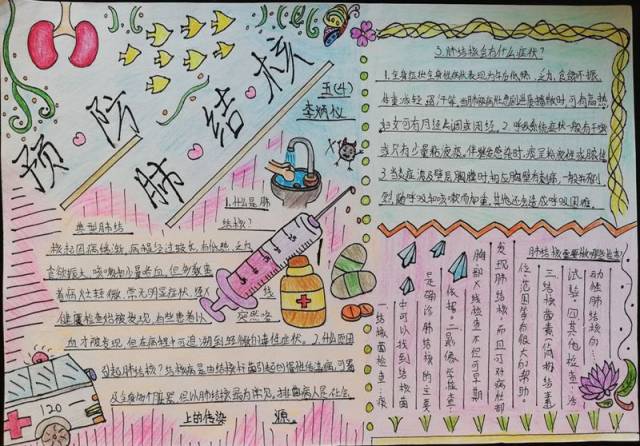 预防
肺结核
五(4)
李炳仪
1.什么是肺
结核?
典型肺结
核起因病缓渐,病程经过较长,有低热、乏力、
食欲振大、咳嗽和少量咯血。但多数患
者病灶轻微,常无明显症状,经X 线
健康检查始被发现,有些患者以 突然咯
血才被发现,但在病程中可追溯到轻微的毒性症状。2.什么原因
引起肺结核?结核病是由结核杆菌引起的慢性传染病,可累
及全身多个脏器,但以肺结核最为常见,排菌病人是社会
上的传染 源。
120
3.肺结核会有什么症状?
1.全身症状:全身性病状表现为午后低热、乏力、食欲不振、
体重减轻、盗汗等。当肺部病灶急剧进展播散时,可有高热,
妇女可有月经失调或闭经。2.呼吸系统症状一般有干咳
或只有少量粘液痰。伴继发感染时,痰呈粘液性或脓性。
3.当炎症波及壁层胸膜时,相应胸壁有刺痛,一般不剧
烈,随呼吸和咳嗽而加重,其他还会造成呼吸困难。
肺结核需要做哪些检查?
一、结核菌检查:痰
中可以找到结核菌
是确诊肺结核的主要
依据。二、影像学检查:
胸部X线检查不但可早期
发现肺结核,而且可对病灶部
位、范围等有很大的帮助。
三、结核菌素(简称结素)
试验。四、其他检查:活
动性肺结核的……